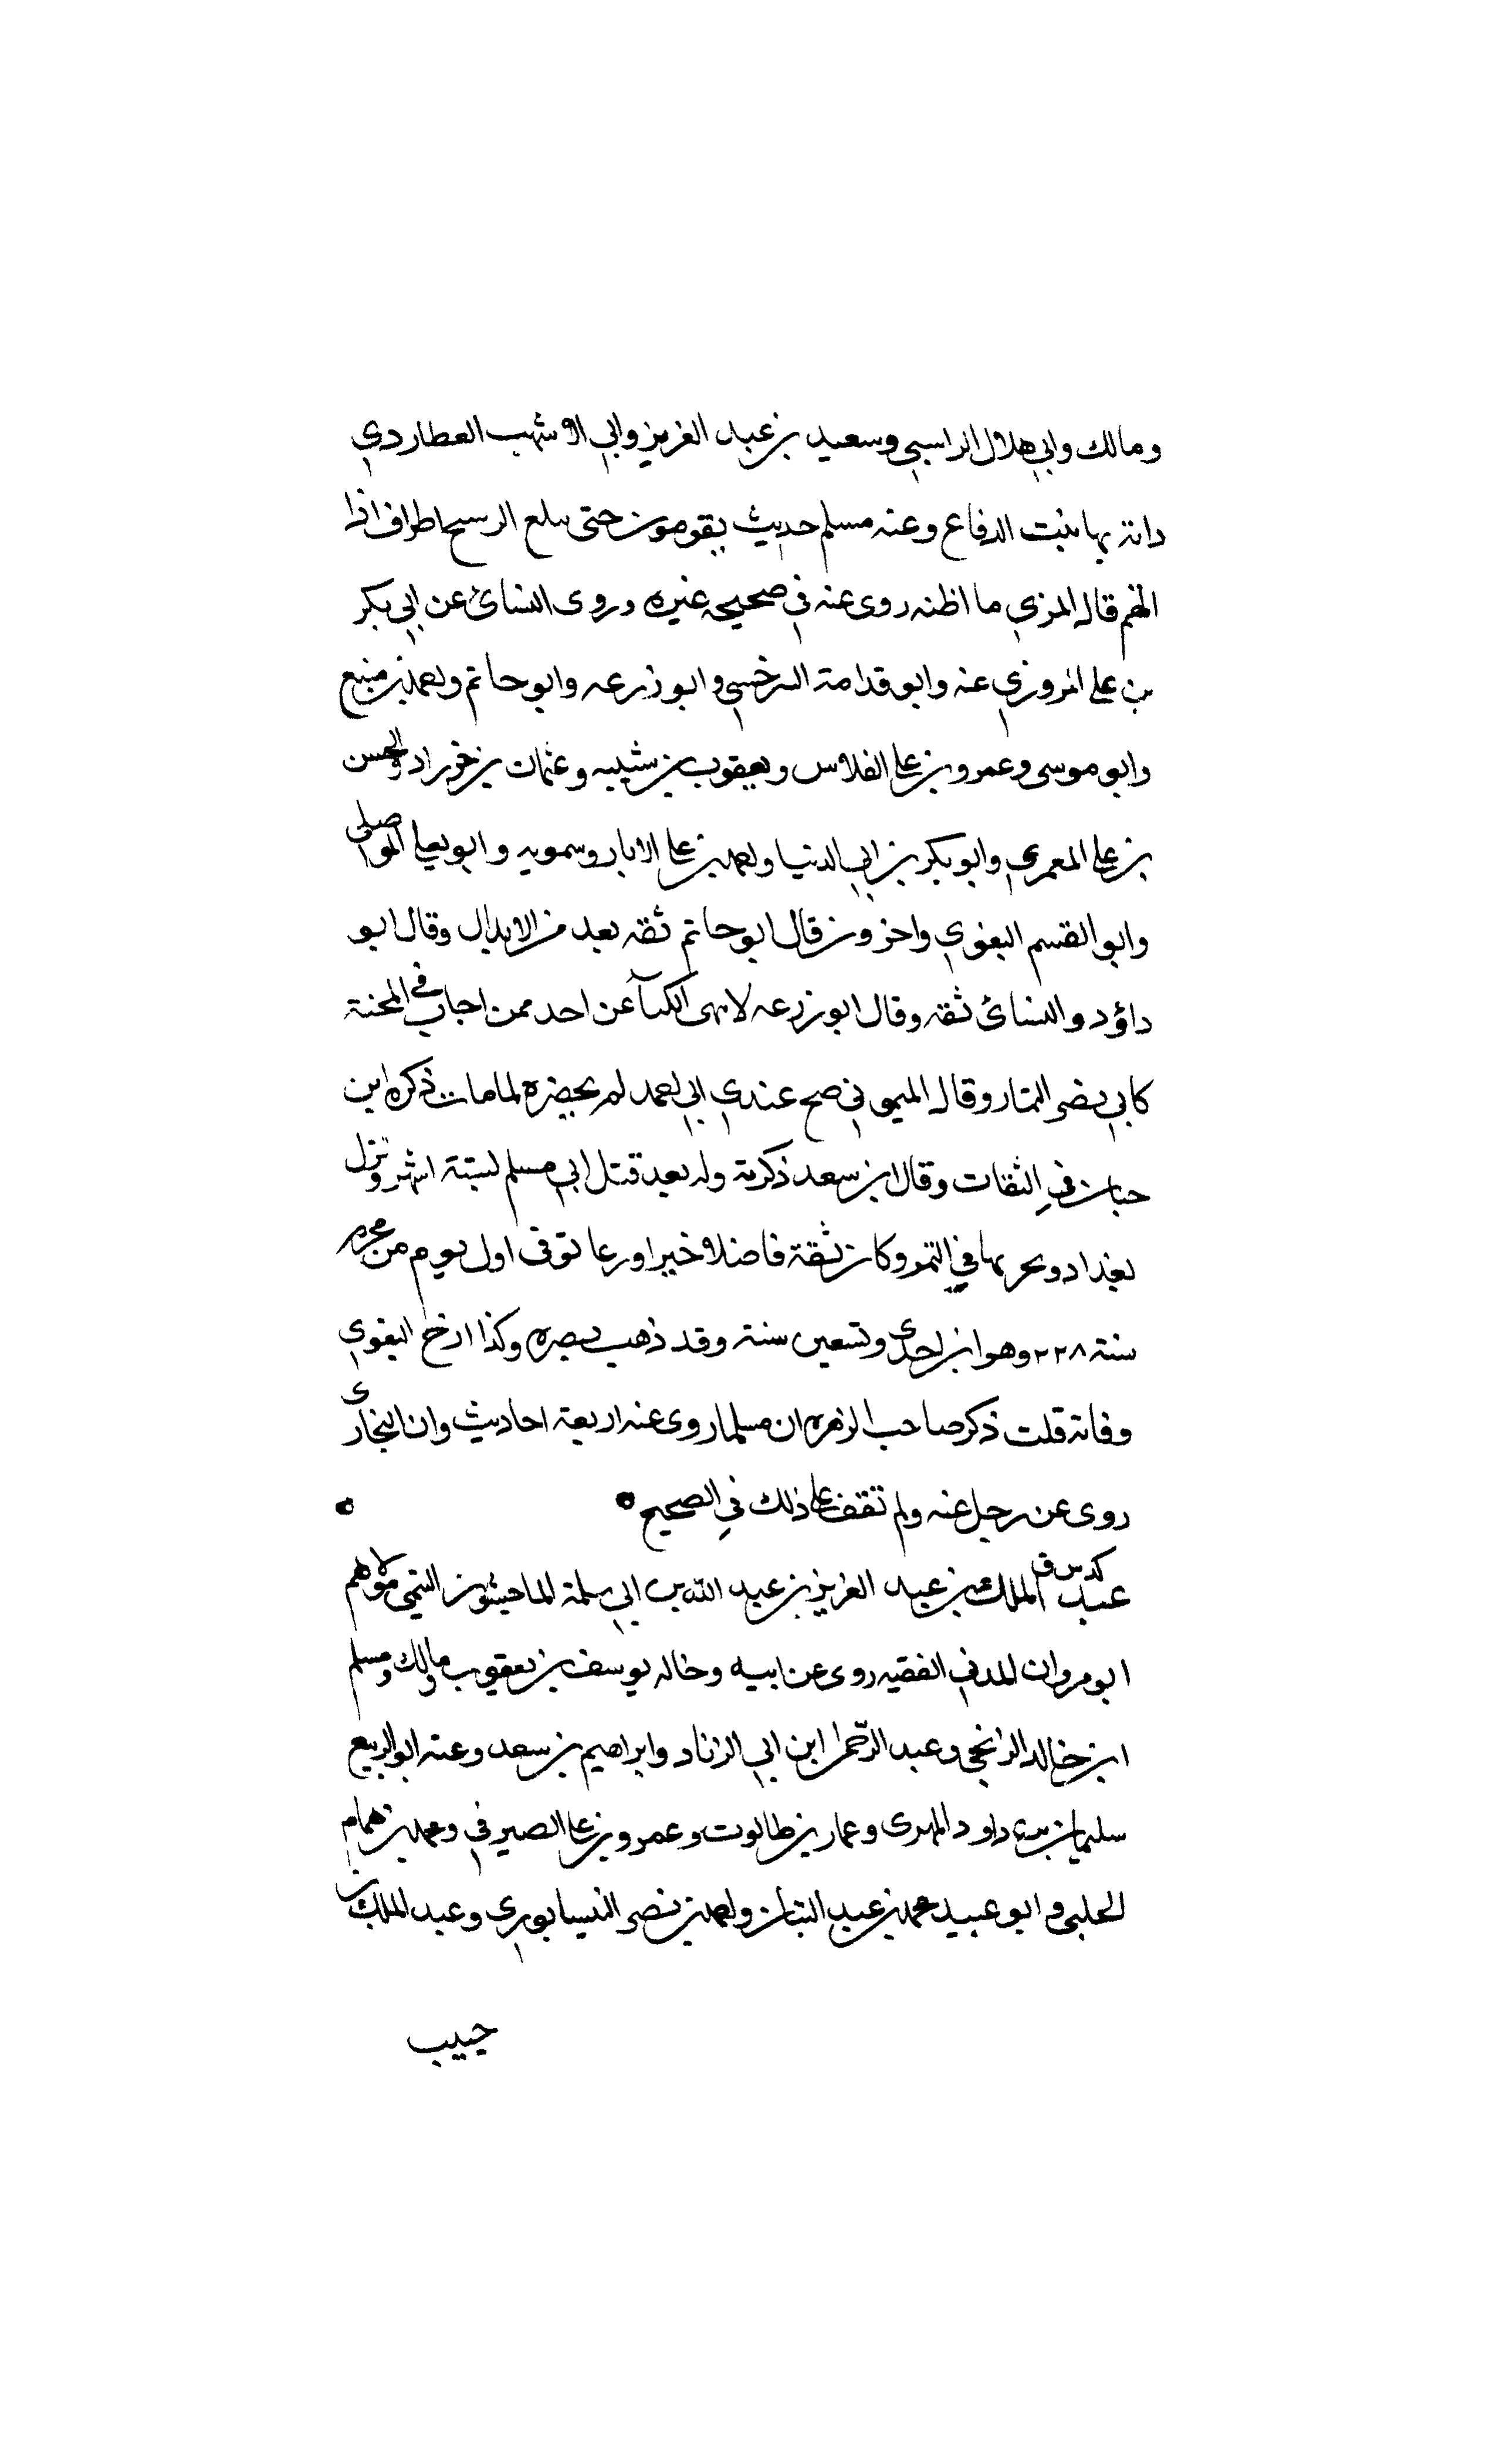 ومالك وابي هلال الراسبي وسعيد بن عبد العزيز وابي الاشهب العطاردي
دانة بها بنت الدفاع وعنه مسلم حديث يقومون حتى يبلغ الرسح اطراف اذا
انهم قال المزي ما اظنه روى عنه في صحيحه غيره وروى النسائ عن ابي بكر
بن علي المروزي عنه وابو قدامة السرخسي وابو زرعه وابو حاتم واحمد بن منيع
وابو موسى وعمرو بن علي الفلاس ويعقوب بن شيبه وعثمان بن خرزاد والحسن
بن علي المعمري وابو بكر بن ابي الدنيا واحمد بن علي الابار وسمويه وابو يعلى الموصلي
وابو القسم البغوي واخرون قال ابو حاتم ثقه يعد من الابدال وقال ابو
داؤد والنسائ ثقه وقال ابو زرعه لا نهى الكتا عن احد ممن اجاب في المحنة
كابي نصر التمار وقال الميموني صح عندي ابي احمد لم يحضره لما مات ذكره ابن
حبان في الثقات وقال ابن سعد ذكر نة ولد بعد قتل ابي مسلم لستة اشهر ونزل
بغداد وتجر بها في التمر وكان ثقة فاضلا خيرا ورعا توفى اول يوم من محرم
سنة ٢٢٨ وهو ابن احدى وتسعين سنة وقد ذهب بصره وكذا ارخ البغوي
وفاته قلت ذكر صاحب الزهره ان مسلما روى عنه اربعة احاديث وان البخارى
روى عن رجل عنه ولم تقف على ذلك في الصحيح
كد س ق
عبد الملك بن عبد العزيز بن عبد الله بن ابي سلمة الماجشون التيمي مولاهم
ابو مروان المدني الفقيه روى عن ابيه وخاله يوسف بن يعقوب ومالك ومسلم
ابن خالد الزنجي وعبد الرحمن ابن ابي الزناد وابراهيم بن سعد وعنه ابو الربيع
سليمان بن داود المهرى وعمار بن طالوت وعمرو بن علي الصيرفي ومحمد بن همام
الحلبي وابو عبيد محمد بن عبيد التبان واحمد بن نصر النيسابوري وعبد الملك بن
حبيب